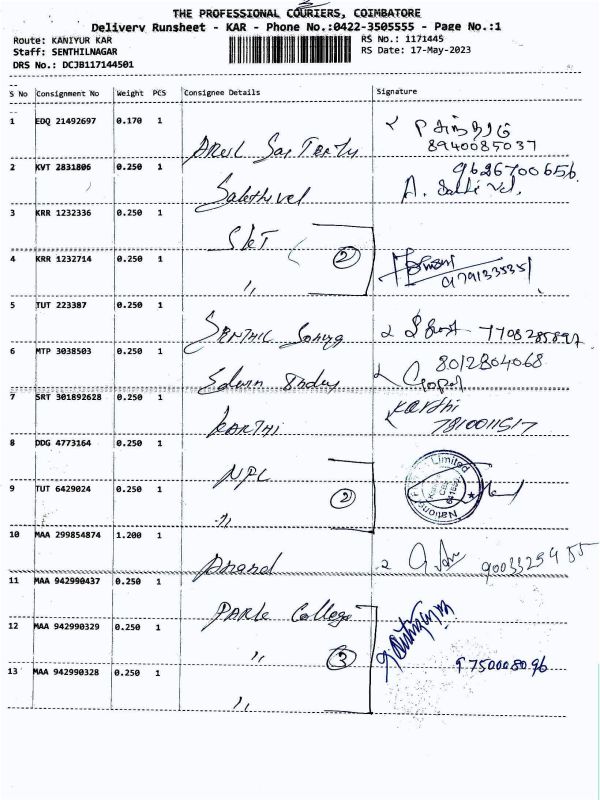 THE PROFESSIONAL COURIERS, COIMBATORE
Delivery Runsheet - KAR - Phone No.:0422-3505555 - Page No.:1
Route: KANIYUR KAR
RS No.: 1171445
Staff: SENTHILNAGAR
RS Date: 17-May-2023
DRS No.: DCJB117144501
S No Consignment No Weight PCS Consignee Details Signature
1 EDQ 21492697 0.170 1
8940085037
2 KVT 2831806 0.250 1
Sakthivel
9626700656
A. Sakthi Vel.
3 KRR 1232336 0.250 1
4 KRR 1232714 0.250 1
2
〃
9791335351
5 TUT 223387 0.250 1
SENTHIL
6 MTP 3038503 0.250 1
8012804068
Edwin
Gopal
7 SRT 301892628 0.250 1
KARTHI
Karthi
7810011517
8 DDG 4773164 0.250 1
NPC
Limited
9 TUT 6429024 0.250 1
2
〃
10 MAA 299854874 1.200 1
Anand
11 MAA 942990437 0.250 1
Park College
12 MAA 942990329 0.250 1
〃
3
13 MAA 942990328 0.250 1
9750008096
〃